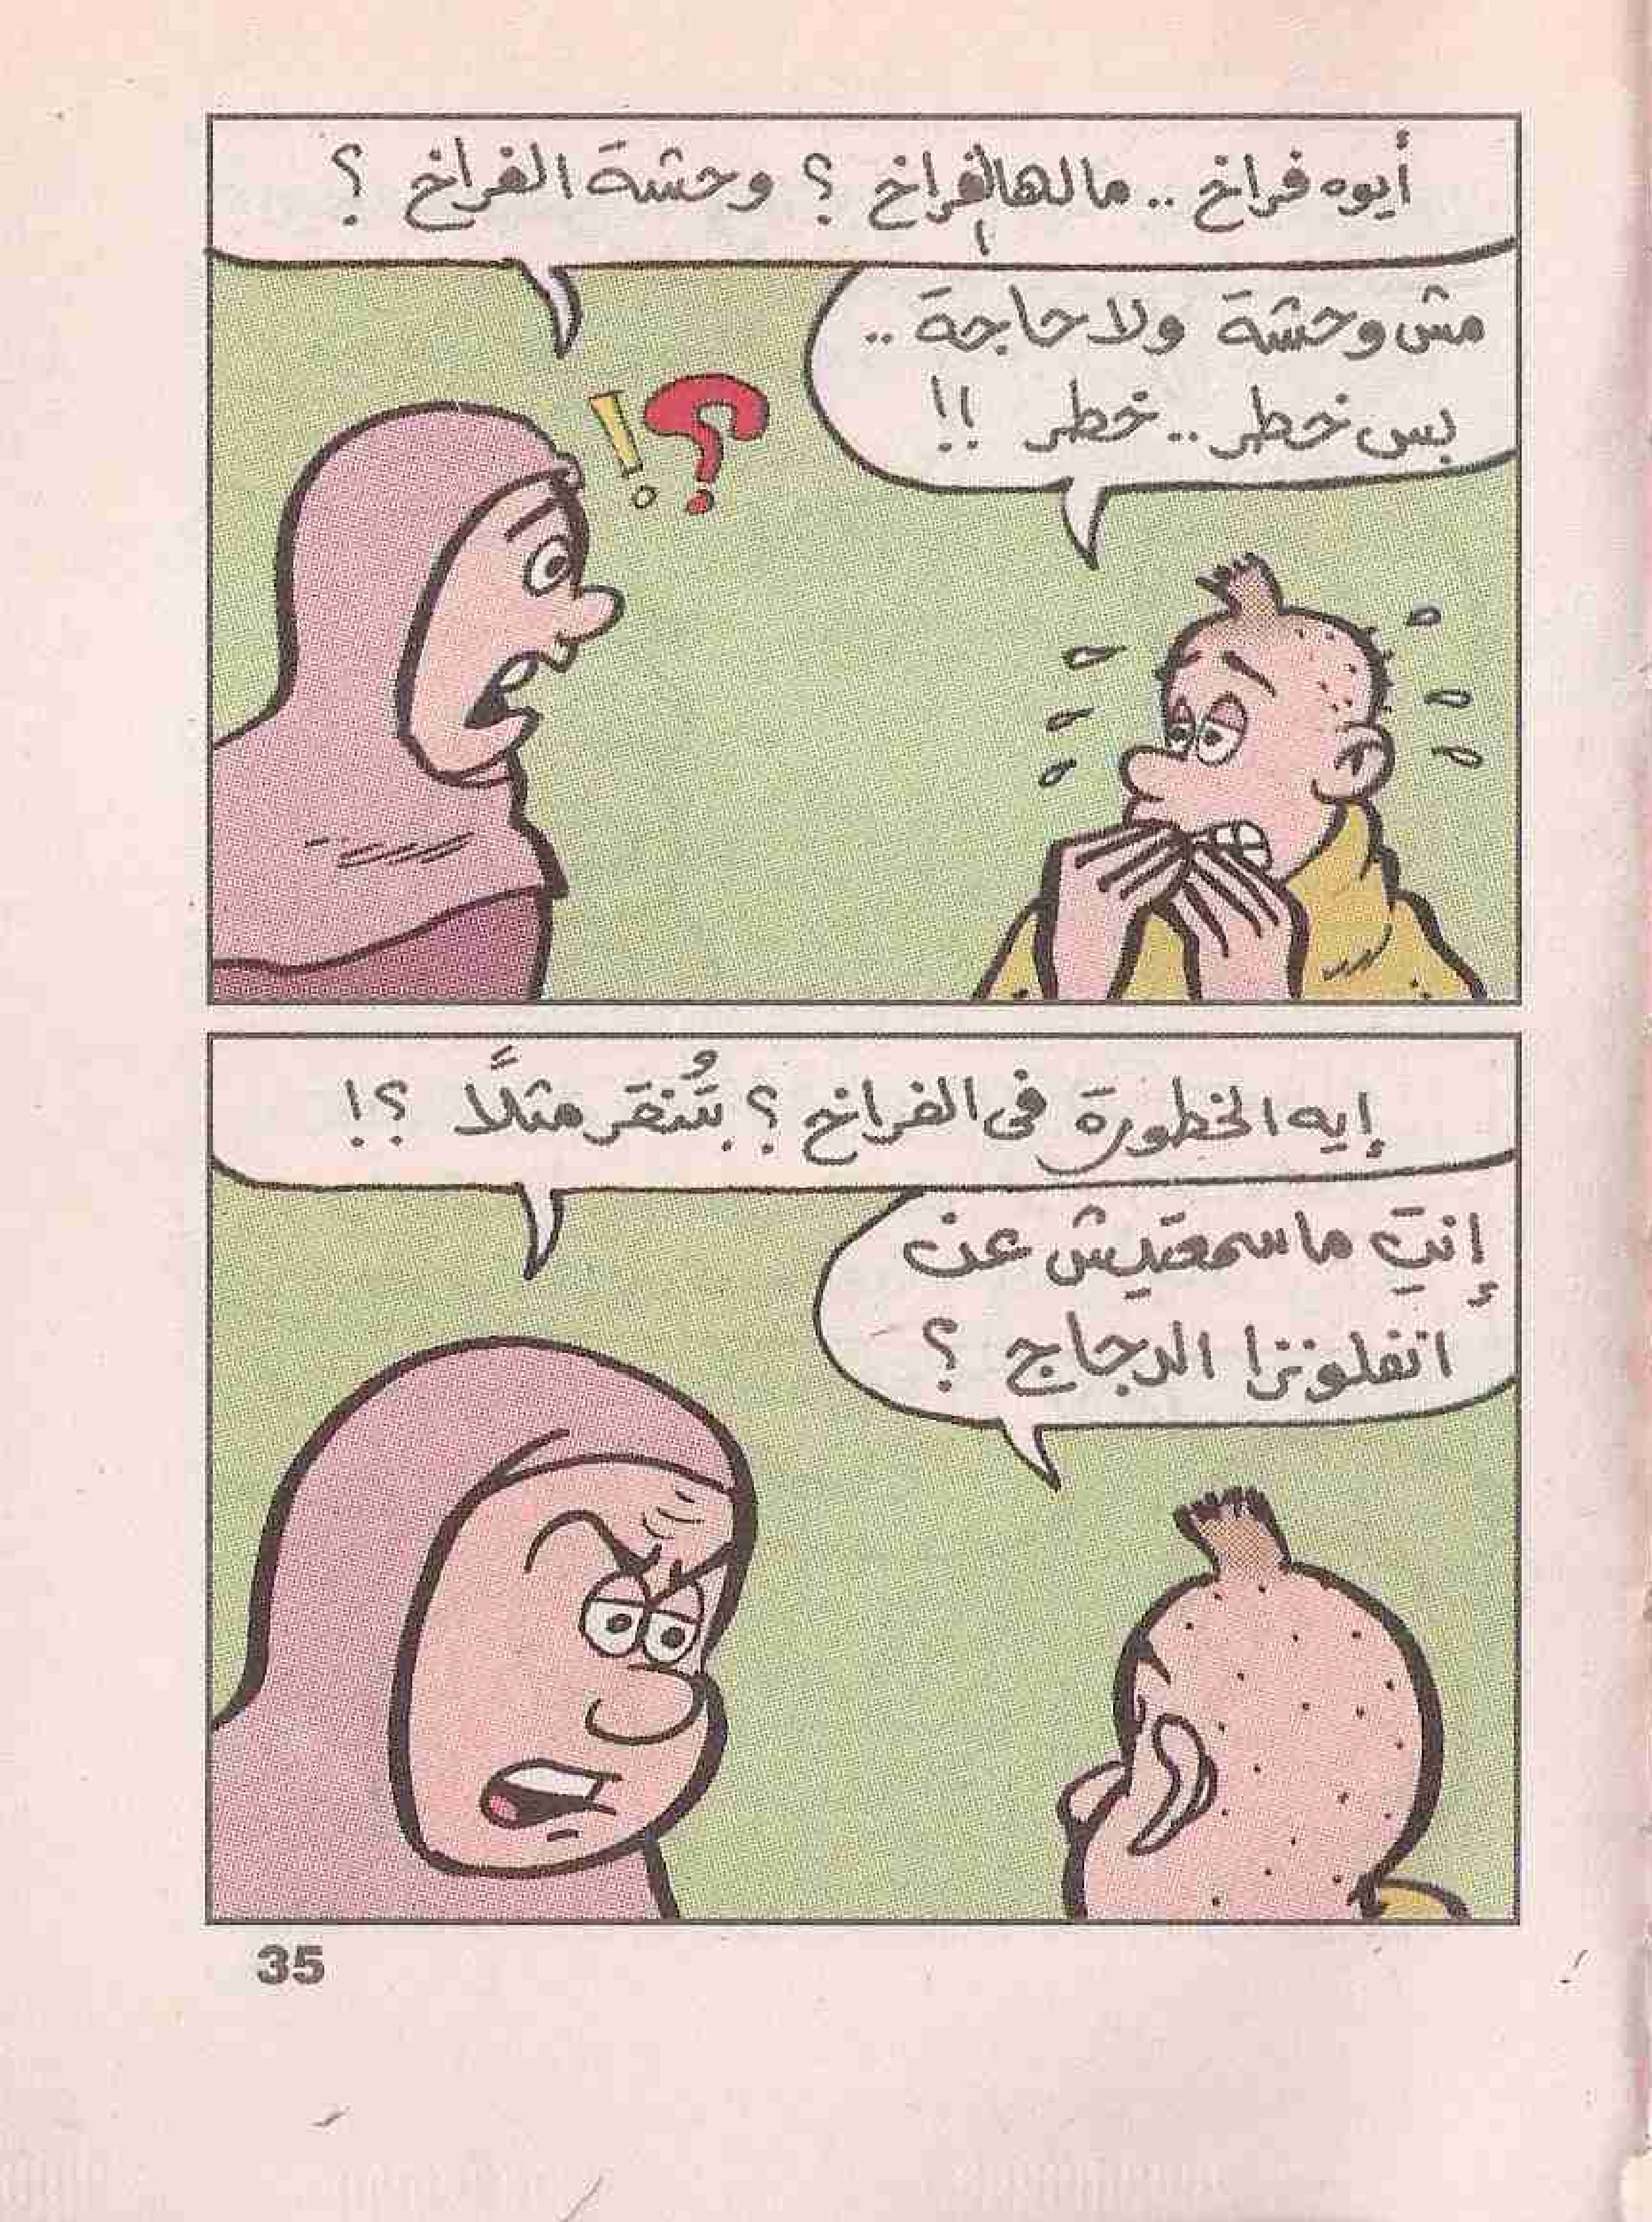 أيوه فراخ .. مالها الفراخ ؟ وحشة الفراخ ؟
مش وحشة ولا حاجة ..
بس خطر .. خطر !!
!؟
إيه الخطورة فى الفراخ ؟ بتُنقر مثلاً ؟!
إنتِ ما سمعتيش عن
انفلونزا الدجاج ؟
35